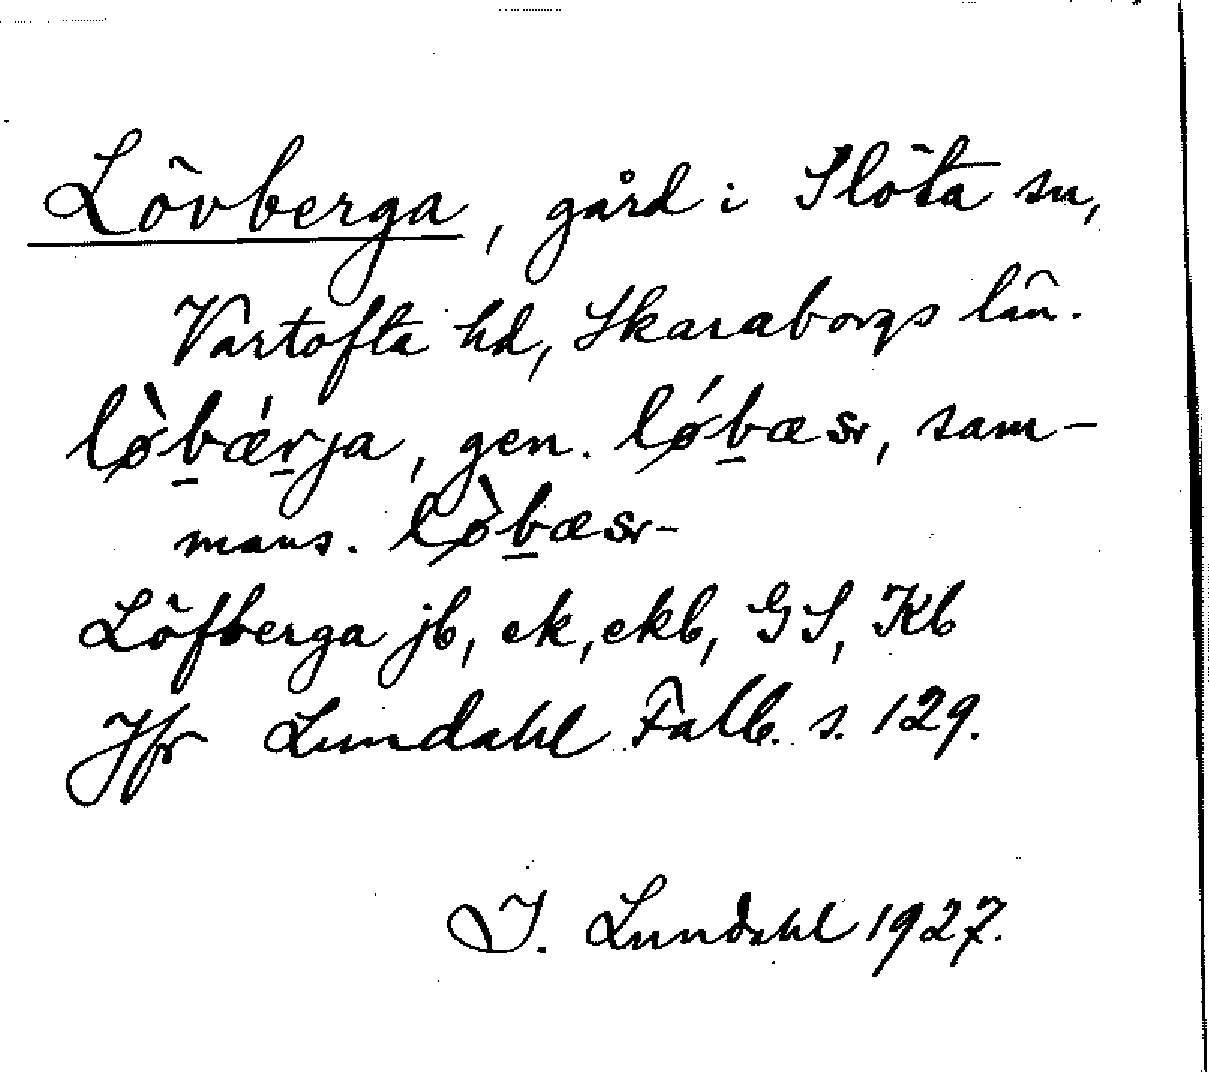 Lövberga, gård i Slöta sn,
Vartofta hd, Skaraborgs län.
lø̀bǽrja, gen. lǿbæsr, sam-
mans. lø̀bæsr-
Löfberga jb, ek, ekb, GS, Kb
Jfr Lundahl Falb. s. 129.
I. Lundahl 1927.